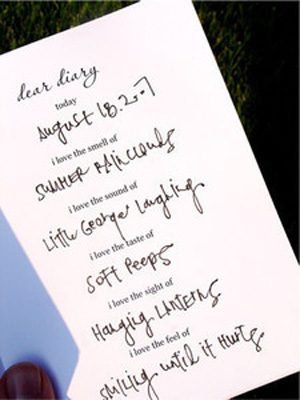 dear diary
today
August 18.2007
i love the smell of
SUMMER RAINCLOUDS
i love the sound of
Little George Laughing
i love the taste of
SOFT Peeps
i love the sight of
Hanging LANTERNS
i love the feel of
smiling until it Hurts